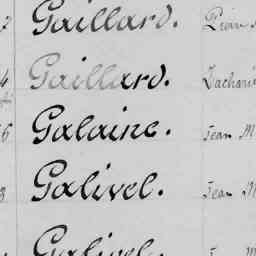 2 Gaillard. Pierre
4 Gaillard. Zacharie
6 Galaine. Jean M
3 Galivel. Jean M
Galivel.